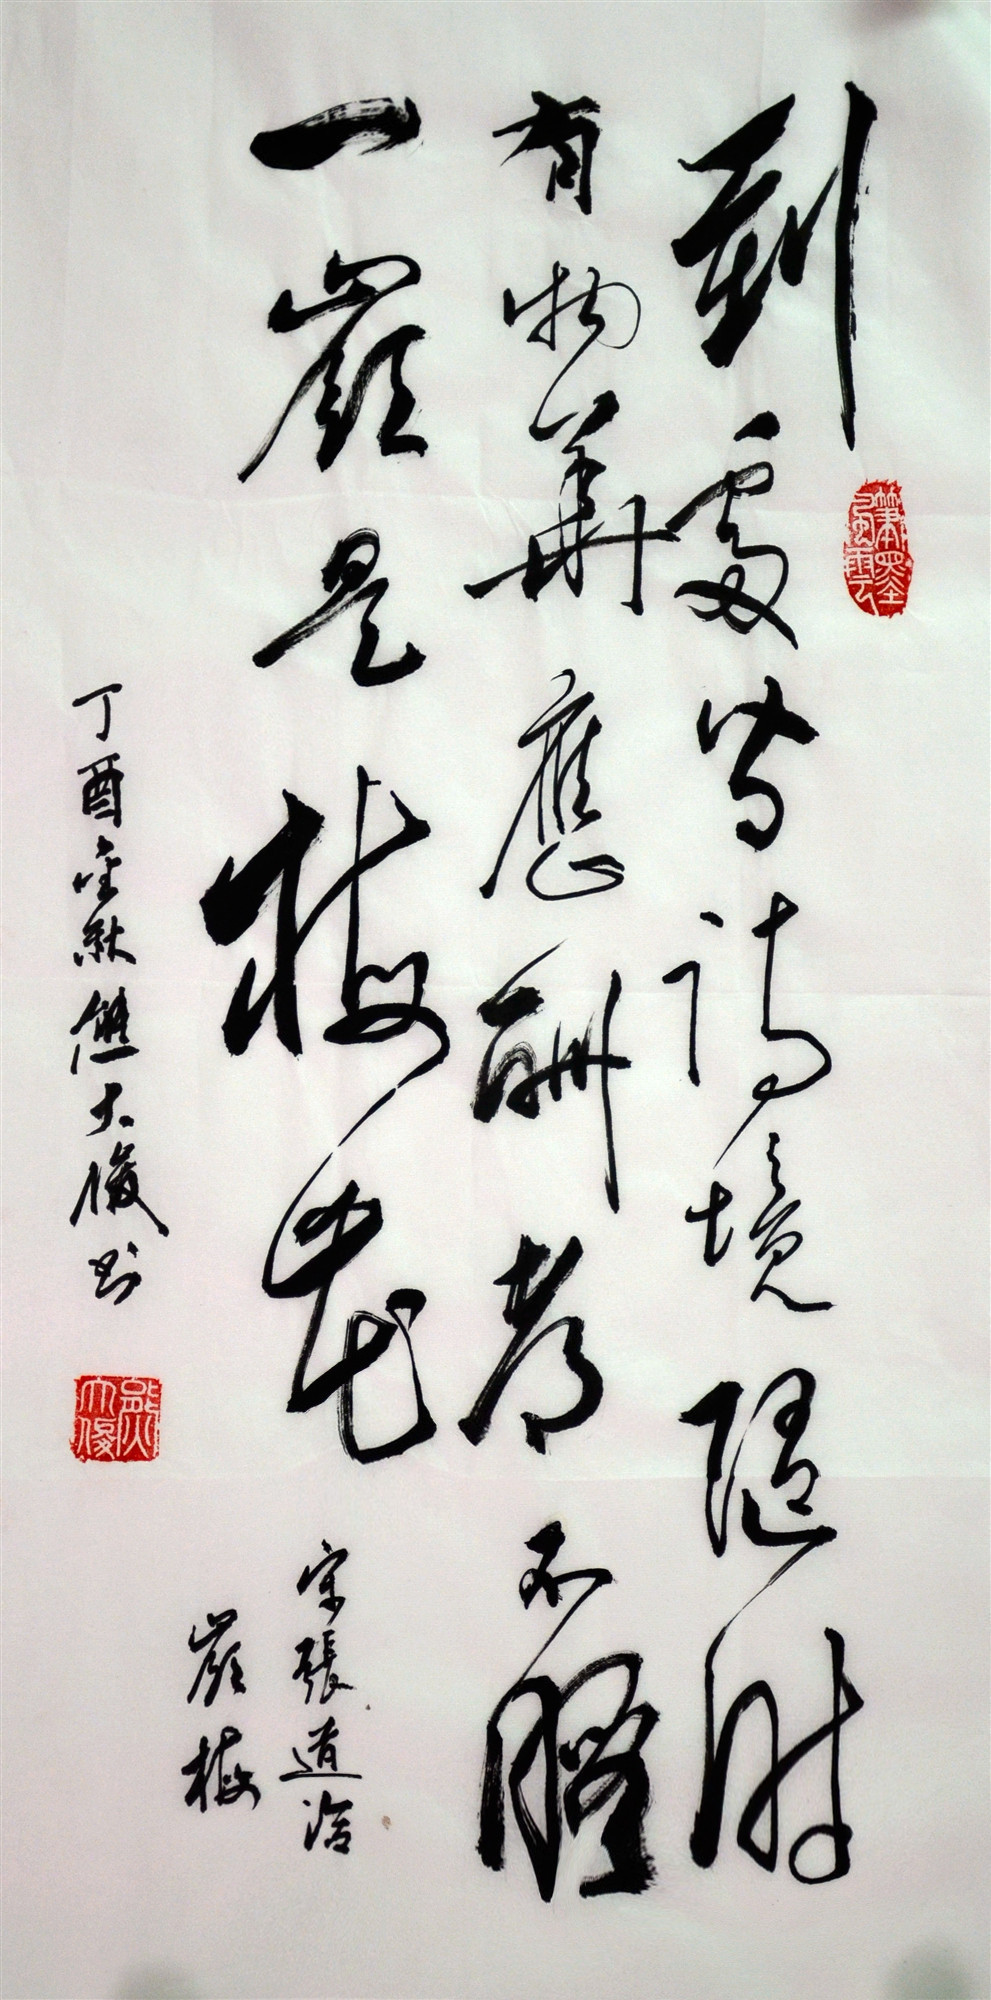 到處皆詩境隨時
有物華應酬都不暇
一嶺是梅花
宋張道洽
嶺梅
丁酉金秋熊大俊書
筆墨風雲
熊大俊